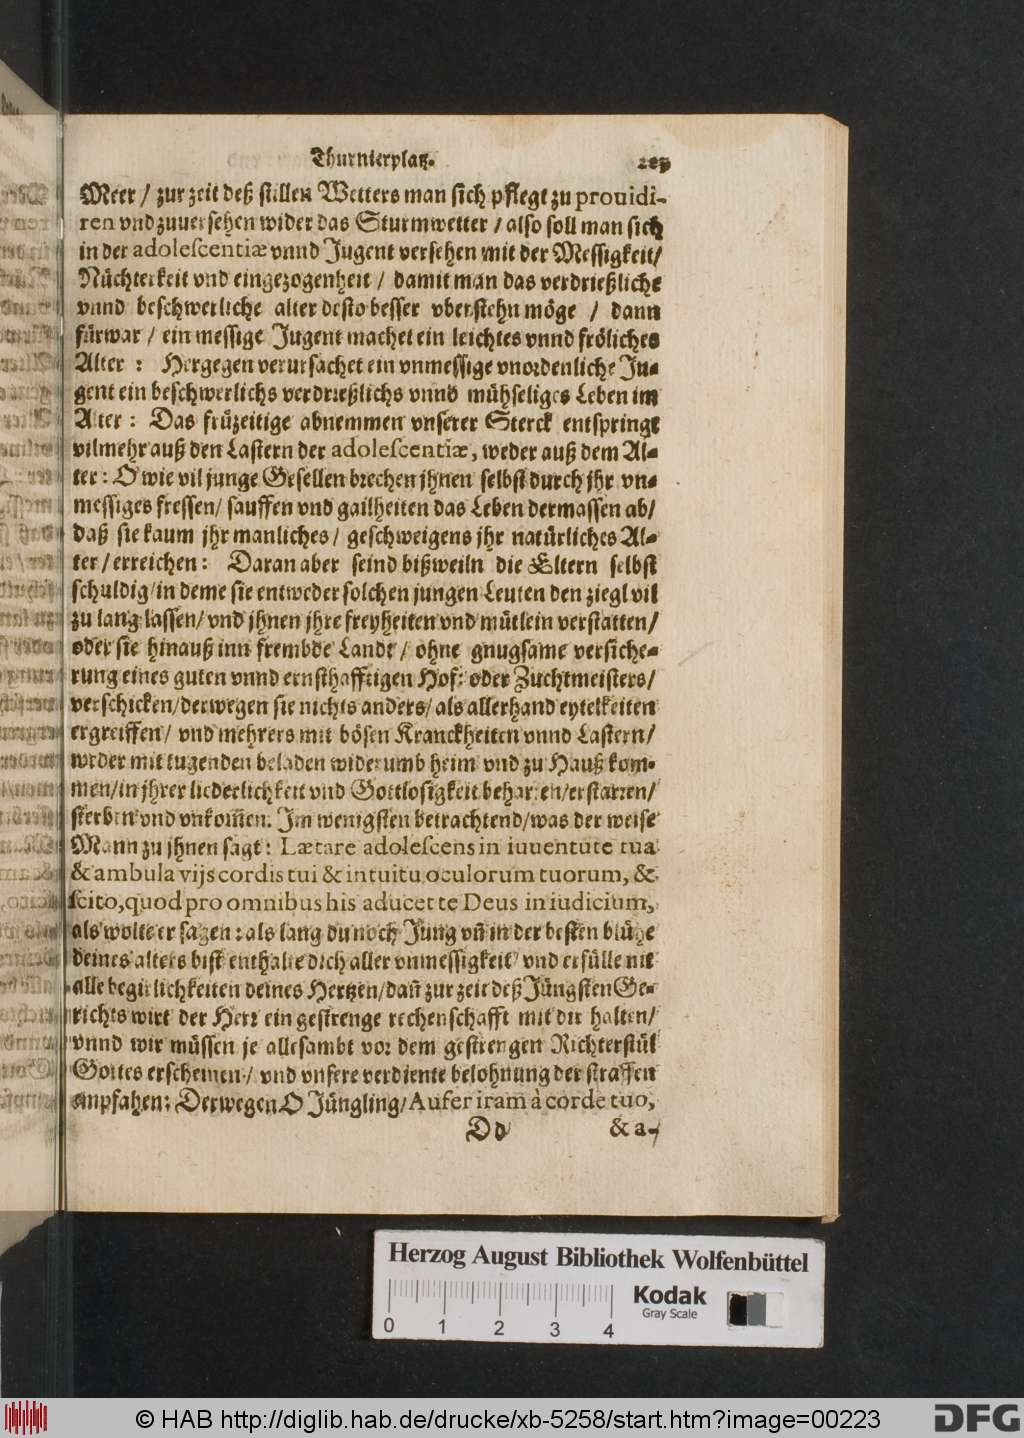 Thurnierplatz.
Meer / zur zeit deß stillen Wetters man sich pflegt zu prouidi-
ren vnd zuuersehen wider das Sturmwetter / also soll man sich
in der adolescentiæ vnnd Jugent versehen mit der Messigkeit/
Nüchterkeit vnd eingezogenheit / damit man das verdrießliche
vnnd beschwerliche alter desto besser vberstehn möge / dann
fürwar / ein messige Jugent machet ein leichtes vnnd fröliches
Alter : Hergegen verursachet ein vnmessige vnordenliche Ju-
gent ein beschwerlichs verdrießlichs vnnd mühseliges Leben im
Alter : Das früzeitige abnemmen vnserer Sterck entspringt
vilmehr auß den Lastern der adolescentiæ, weder auß dem Al-
ter : O wie vil junge Gesellen brechen jhnen selbst durch jhr vn-
messiges fressen/ sauffen vnd gailheiten das Leben dermassen ab/
daß sie kaum jhr manliches / geschweigens jhr natürliches Al-
ter / erreichen : Daran aber seind bißweiln die Eltern selbst
schuldig/in deme sie entweder solchen jungen Leuten den ziegl vil
zu lang lassen/ vnd jhnen jhre freyheiten vnd mütlein verstatten/
oder sie hinauß inn frembde Landt / ohne gnugsame versiche-
rung eines guten vnnd ernsthafftigen Hof: oder Zuchtmeisters/
verschicken/derwegen sie nichts anders/ als allerhand eytelkeiten
ergreiffen/ vnd mehrers mit bösen Kranckheiten vnnd Lastern/
weder mit tugenden beladen widerumb heim vnd zu Hauß kom-
men/in jhrer liederlichkeit vnd Gottlosigkeit beharren/erstarren/
sterben vnd vnkom̃en. Im wenigsten betrachtend/was der weise
Mann zu jhnen sagt : Lætare adolescens in iuuentute tua
& ambula vijs cordis tui & intuitu oculorum tuorum, &
scito, quod pro omnibus his aducet te Deus in iudicium,
als wolte er sagen : als lang du noch Jung vñ in der besten blühe
deines alters bist enthalte dich aller vnmessigkeit/ vnd erfülle nit
alle begirlichkeiten deines Hertzen/dañ zur zeit deß Jüngsten Ge-
richts wirt der Herr ein gestrenge rechenschafft mit dir halten/
vnnd wir müssen je allesambt vor dem gestrengen Richterstůl
Gottes erscheinen / vnd vnsere verdiente belohnung der straffen
empfahen: Derwegen O Jüngling/Aufer iram̃ à corde tuo,
Dd & a-
Herzog August Bibliothek Wolfenbüttel
0 1 2 3 4
Kodak
Gray Scale
© HAB http://diglib.hab.de/drucke/xb-5258/start.htm?image=00223
DFG